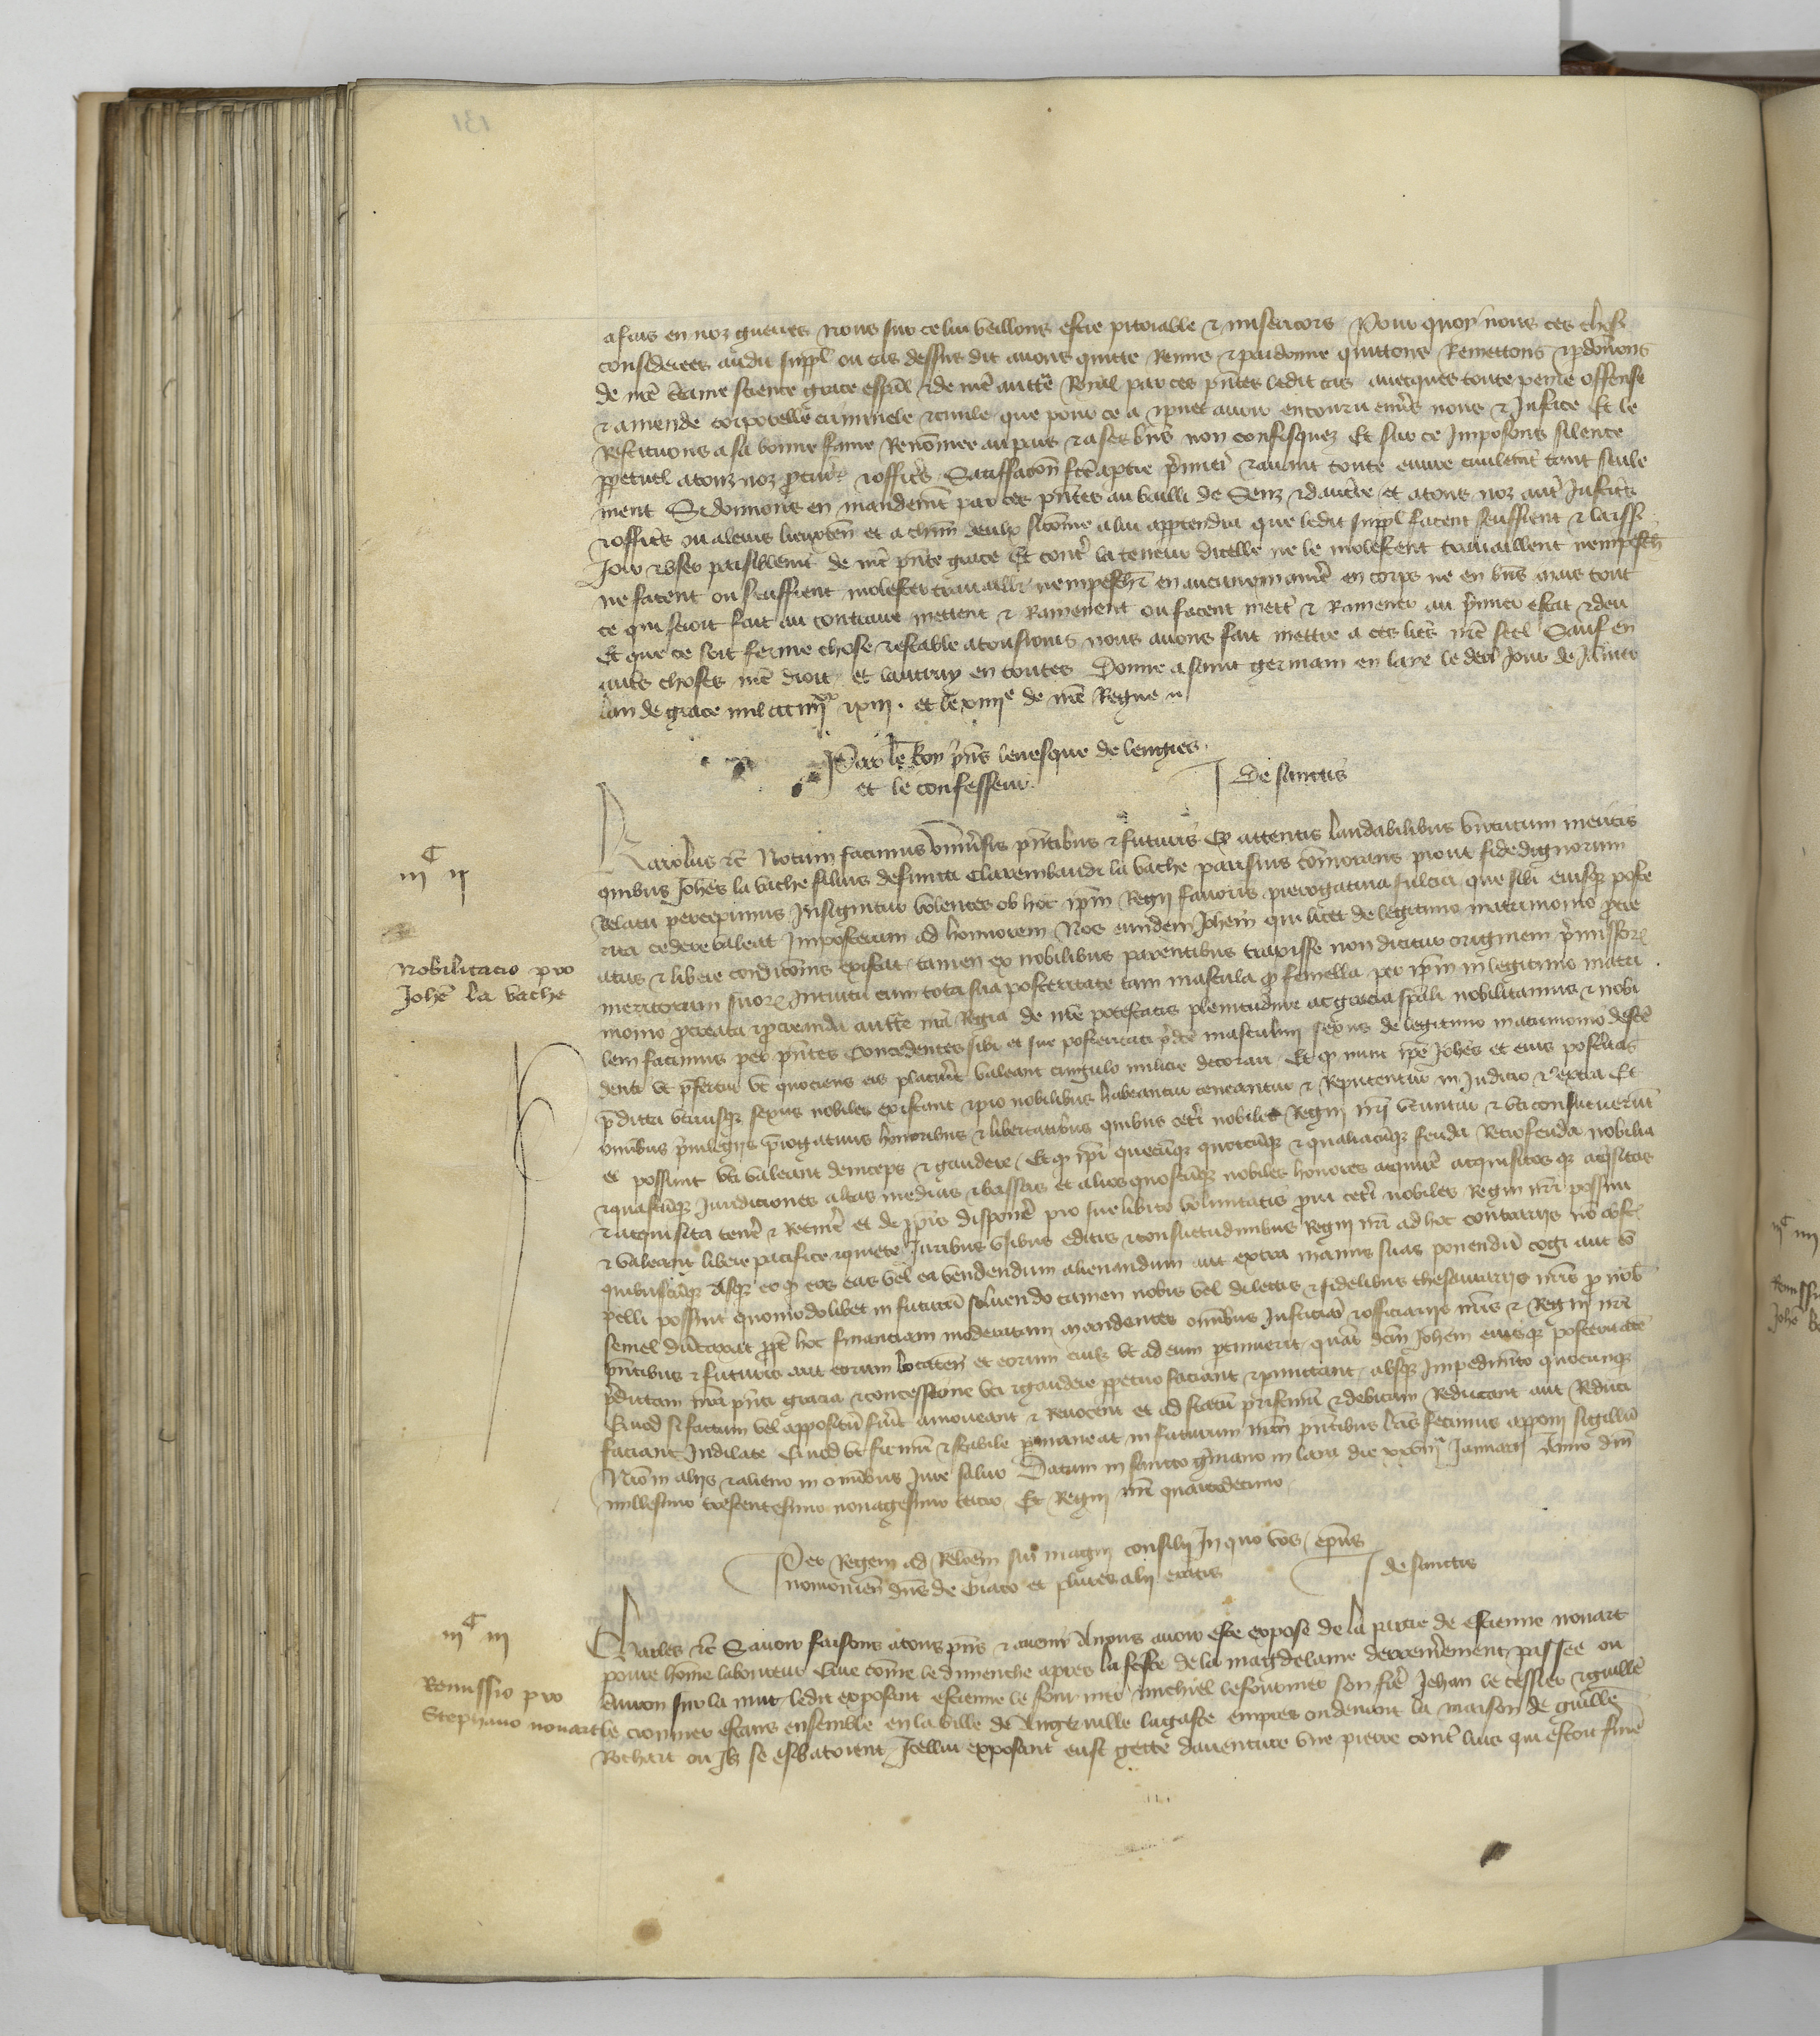 a faire en noz guerres nous sur ce lui veillons estre piteable & misericors Pour quoy nous ces choses
considerees audit suppl ou cas dessus dit avons quitte Remis & pardonne quittons Remettons & pdonnons
de nre certaine science grace espal & de nre auctte Roial par ces pntes ledit cas avecques toute peine offense
& amende corporelle criminele & civile que pour ce a ipuet avoir encouru envs nous & Justice Et le
Restituons a sa bonne fame Renommee au pais & a ses bns non confisquez Et sur ce Imposons silence
ppetuel a touz noz pcur & officrs Satisfacon fcte a ptie pmier & avant toute euvre civilemt tant seule
ment Si donnons en mandemt par ces pntes au bailli de Senz & daucerre et a tous noz autrs Justicrs
& officrs ou a leurs lieuxten et a chun deulx sicome a lui apptendra que ledit suppl facent seuffrent & laissent
Joir & user paisiblemt de nre pnte grace Et contr la teneur dicelle ne le molestent travaillent nempeschent
ne facent ou seuffrent molester travailler nempeschr en aucune manre en corps ne en bns mais tout
ce qui seroit fait au contraire mettent & Ramenent ou facent mettr & Ramener au pmier estat & deu
Et que ce soit ferme chose & estable a tousiours nous avons fait mettre a ces lres nre seel Sauf en
autrs choses nre droit et lautruy en toutes Donne a saint germain en laye le derr Jour de Janvr
lan de grace mil ccc iiijxx xiij. et le xiiije de nre Regne
Par le Roy pns levesque de lengres
et le confesseur
De sanctis
iijc ij
Karolus &c Notum facimus univsis pntibus & futuris Qz attentis laudabilibus virtutum meritis
quibus Johes la vache filius defuncti Clarembaudi la vache parisius comorans prout fidedignorum
Relatu percepimus Insignitur volentes ob hoc ipm Regij favoris prerogativa fulciri que sibi eiusqz poste
ritati cedere valeat Imposterum ad honorem Nos eundem Johem qui licet de legitimo matrimonio pcre
atus & libere condicois existat tamen ex nobilibus parentibus traxisse non dicitur originem pmissor
nobilitacio pro
Johe la vache
meritorum suor Intuitu cum tota sua posteritate tam mascula qz femella per ipm in legitimo matri
monio pcreata & pcreanda auctte nra Regia de nre potestatis plenitudine ac gracia spali nobilitamus & nobi
lem facimus per pntes Concedentes sibi et sue posteritati pdce masculini sexus de legitimo matrimonio descen
denti ut pfertur ut quociens eis placuit valeant cingulo milicie decorari Et qz nunc ipe Johes et eius posteritas
pdicta utriusqz sexus nobiles existant & pro nobilibus habeantur teneantur & Reputentur in Judicio & extra Et
omibus pvilegijs progativis honoribus & libertatibus quibus cetri nobiles Regni nri utuntur & uti consueverunt
et possunt uti valeant deinceps & gaudere Et qz ipi quecuqz quotcuqz & qualiacuqz feuda Retrofeuda nobilia
& quascuqz Juridiciones altas medias & bassas et alios quoscuqz nobiles honores acquire acquisitos qz acqsitas
& acquisita tenere & Retinere et de ipis disponere pro sue libito voluntatis prout cetri nobiles Regni nri possunt
& valeant libere pacifice & quiete Juribus usibus edictis & consuetudinibus Regni nri ad hoc contrarijs no obst
quibuscuqz absqz eo qz eos eas vel ea vendendum alienandum aut extra manus suas ponendu cogi aut com
pelli possint quomodolibet in futuru solvendo tamen nobis vel dilectis & fidelibus thesaurarijs nris p nob
semel dutaxat ppt hoc financiam moderatam mandantes omibus Justiciis & officiarijs nris & Regni nri
pntibus & futuris aut eorum locaten et eorum cuilz ut ad eum ptinuerit quatenus dcm Johem eiusqz posteritatem
pdictam nra pnti gracia & concessione uti & gaudere ppetuo faciant & pmittant absqz Impedimto quocunqz
Quod si factum vel appositu fuit amoveant & Revocent et ad statu pristinu & debitum Reducant aut Reduci
faciant Indilate Quod ut firmu & stabile pmaneat in futurum nrm pntibus lris fecimus apponi sigillu
Nro in alijs & alieno in omibus Jure salvo Datum in sancto gmano in laya die xxviija Januarij Anno dni
millesimo trescentesimo nonagesimo tercio Et Regni nri quartodecimo
Per Regem ad Relcoem sui magni consilij In quo vos epus
noviomen dns de Giaco et plures alij eratis
de sanctis
iijc iij
Charles &c Savoir faisons a tous pns & avenir A nous avoir este expose de la partie de estienne novart
povre home laboureur Que come le dimenche apres la feste de la magdelaine derrenierement passee ou
Remissio pro
Stephano novart
environ sur la nuit ledit exposant estienne le fournier michiel le fournier son fre Jehan le tessier & guille
le cronnier estans ensemble en la ville de Angerville la gaste empres ou devant la maison de guille
Rochart ou Ilz se esbatoient Icellui exposant eust gette daventure une pierre contr luis qui estoit ferme